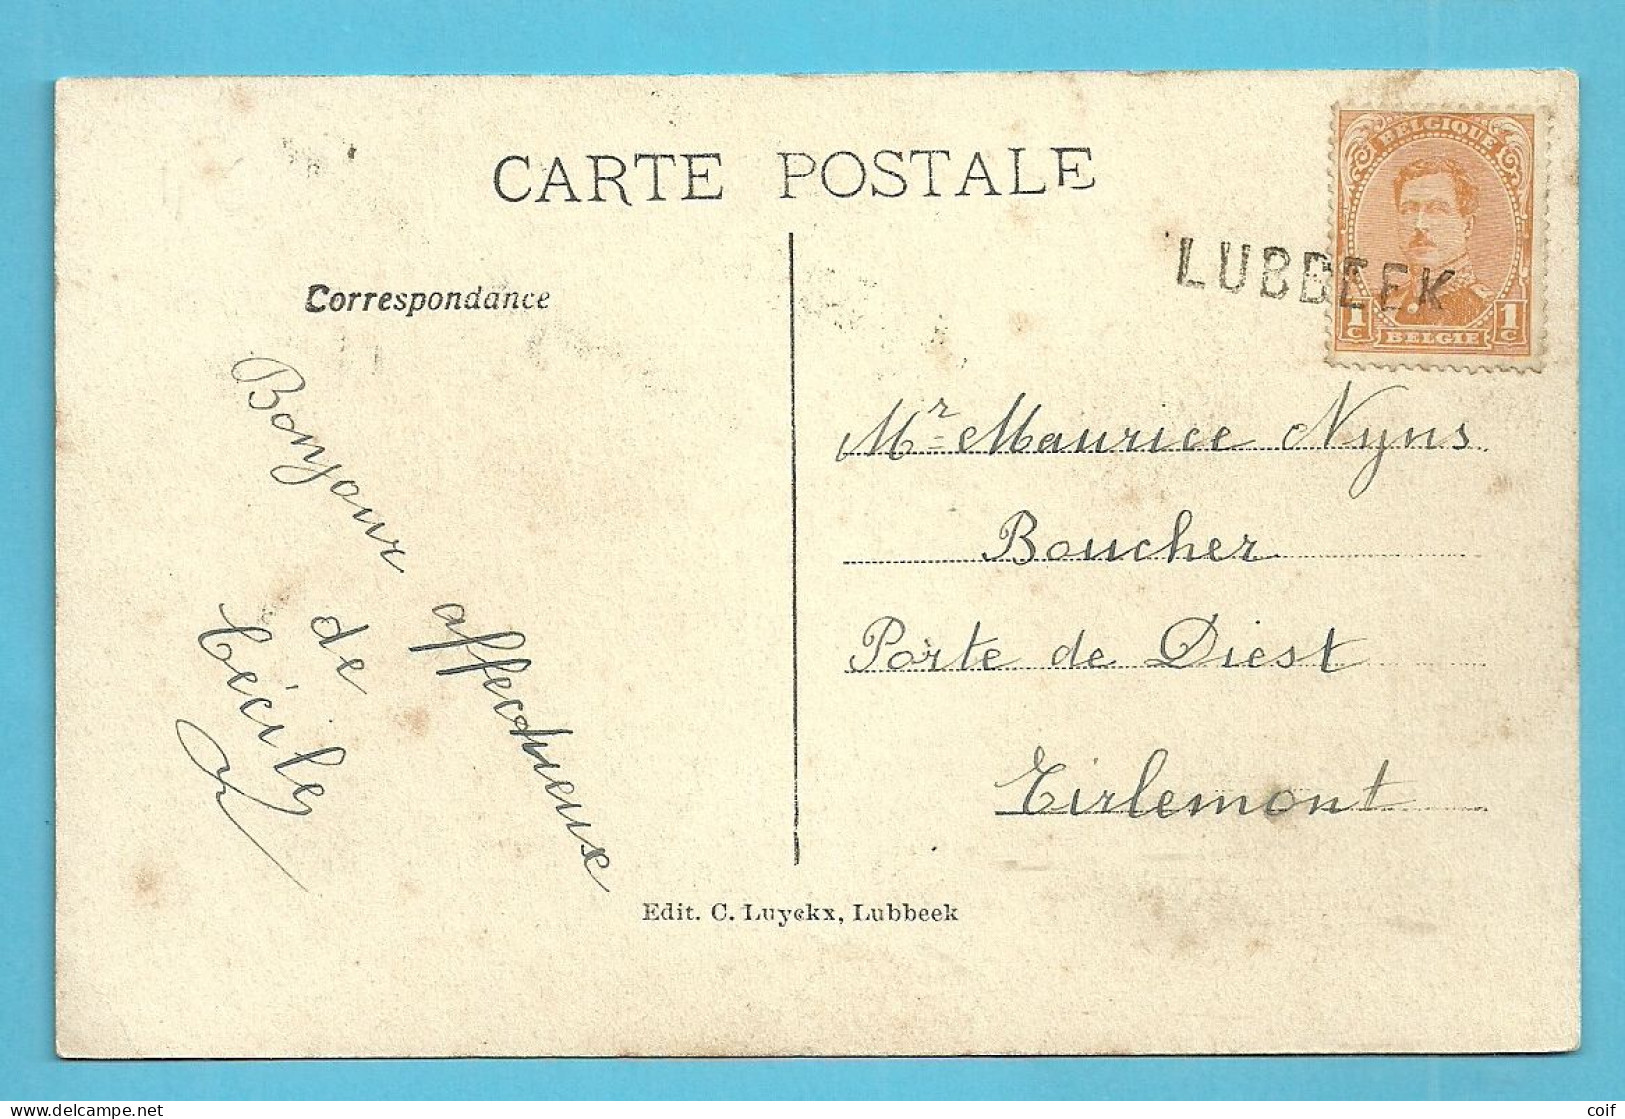 CARTE POSTALE
BELGIQUE
LUBBEEK
1c 1c
BELGIE
Correspondance
Bonjour
affectueux
de
Cécile
Mr Maurice Nyns
Boucher
Porte de Diest
Tirlemont
Edit. C. Luyckx, Lubbeek
delcampe.net
coif